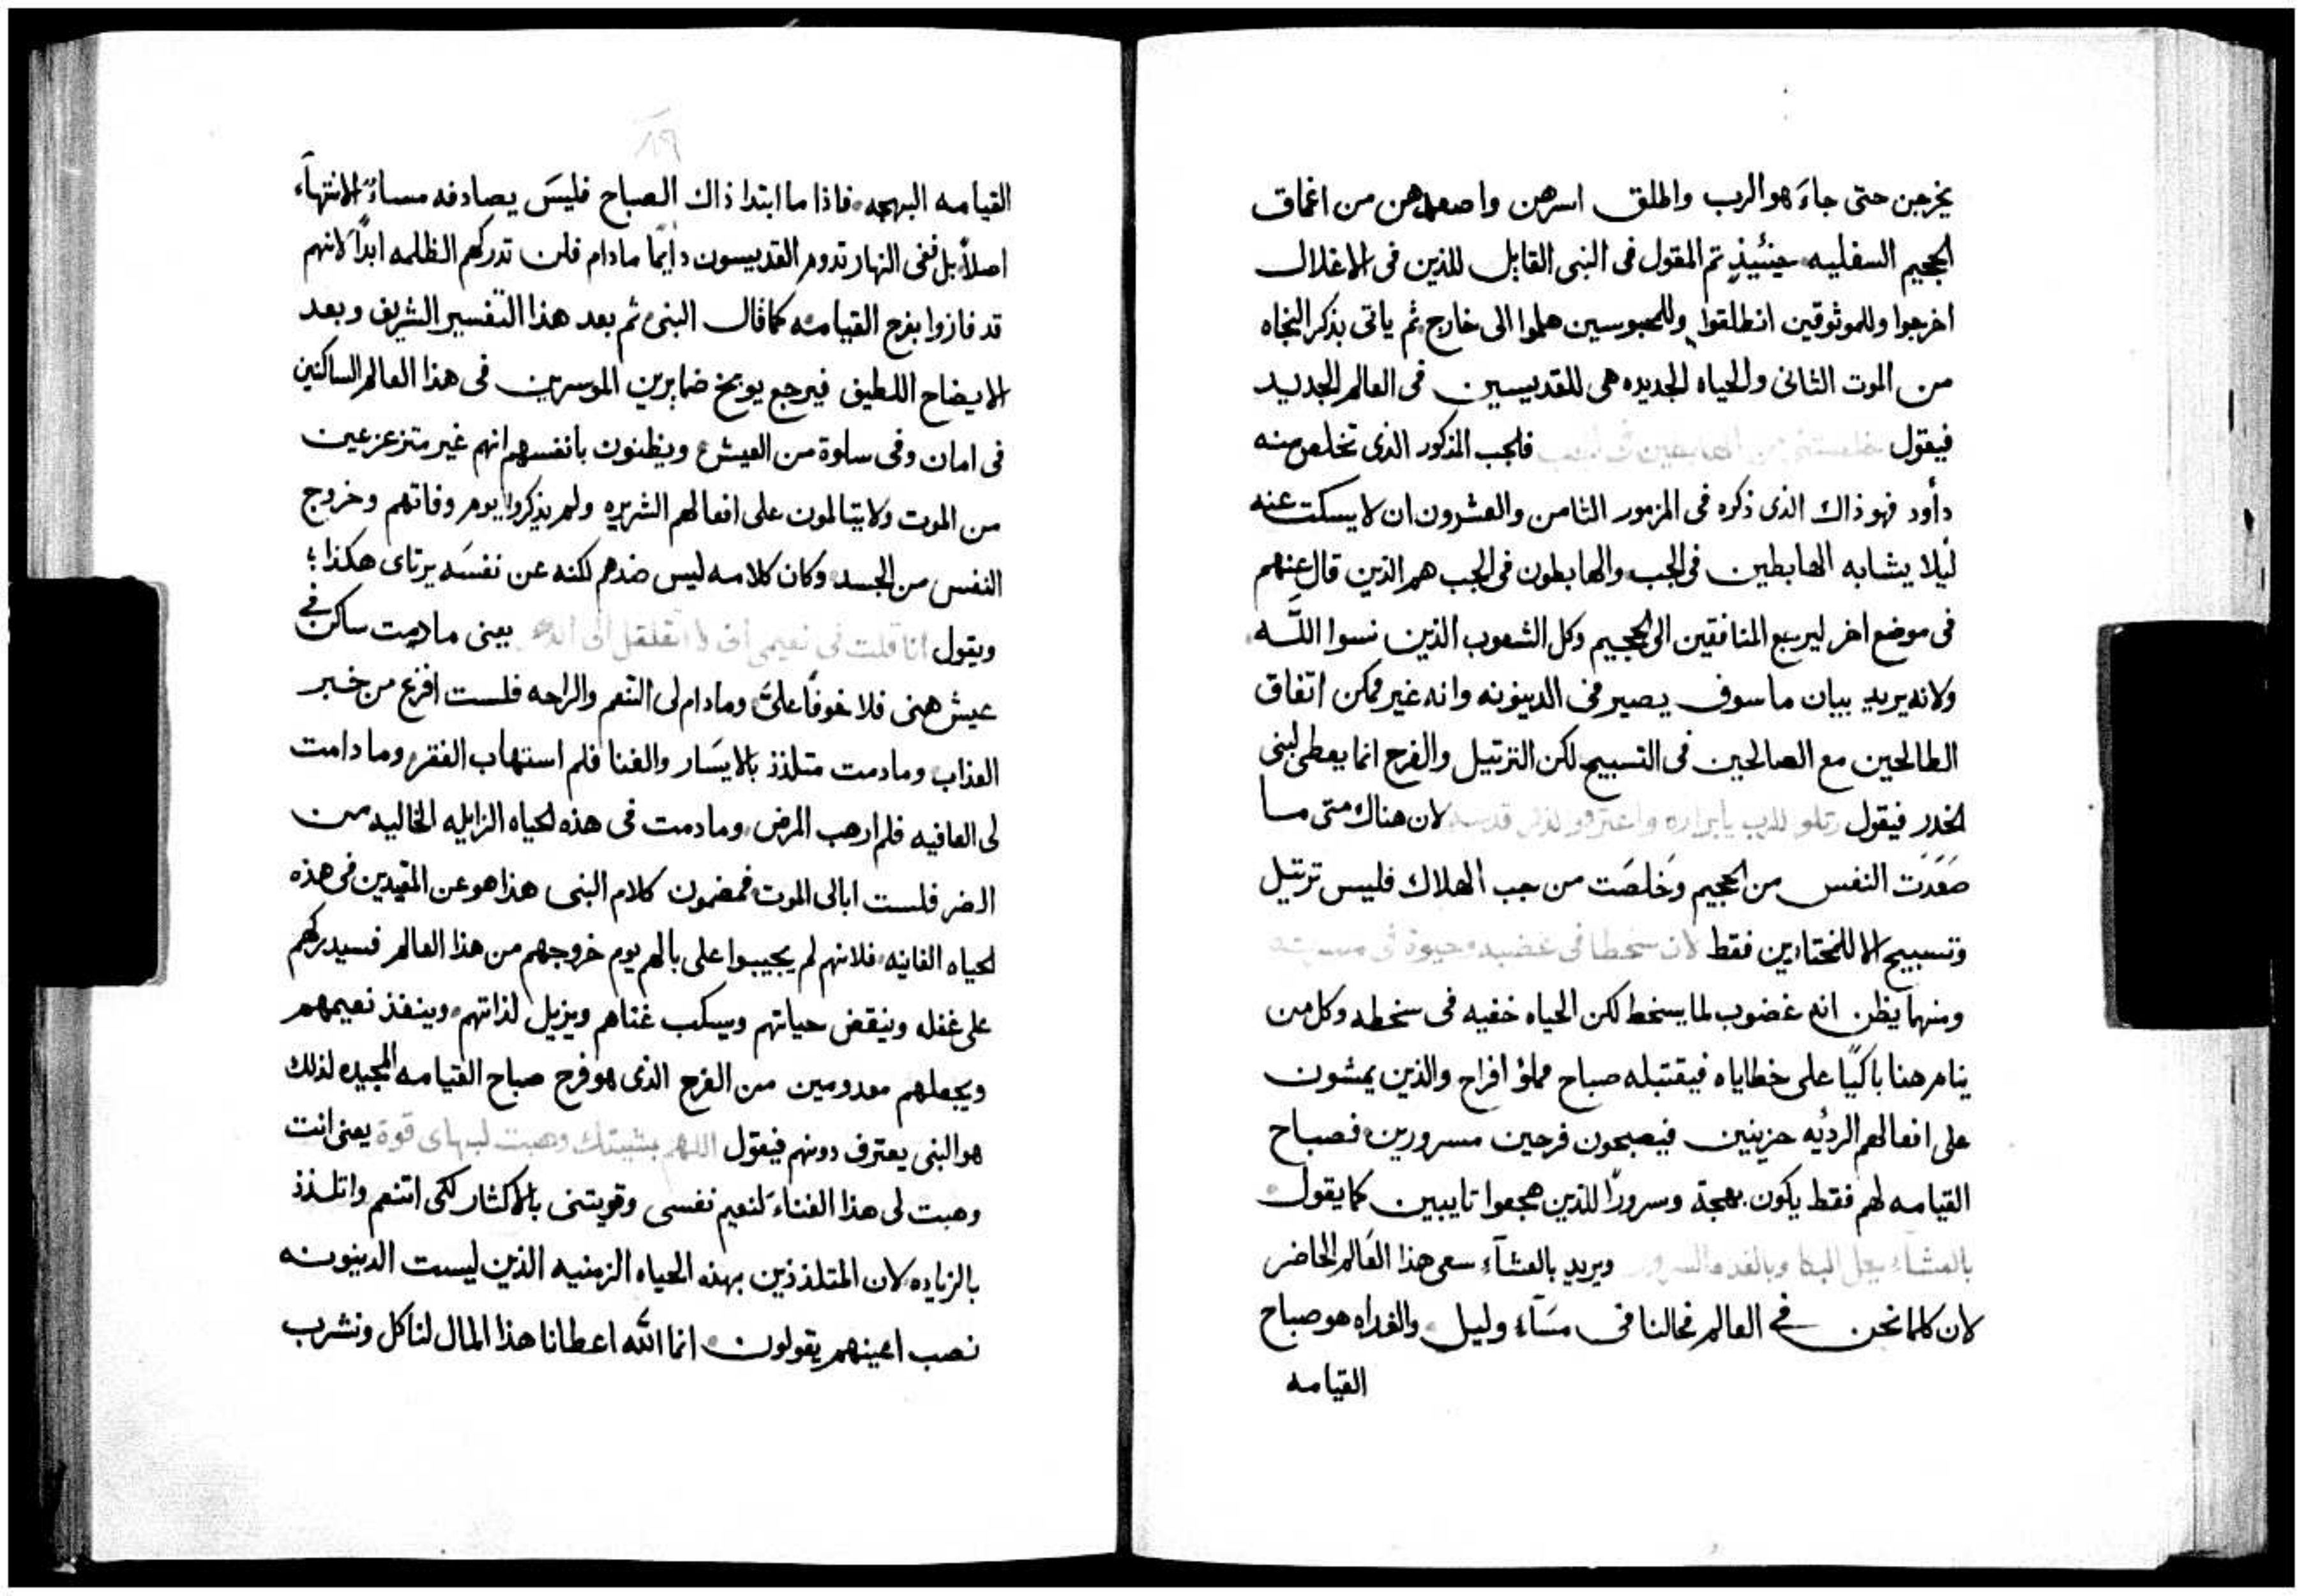 يخرجن حتى جاءَ هو الرب واطلق اسرهن واصعدهن من اغماق
الجحيم السفليه حينئيذٍ تم المقول فى النبى القايل للذين فى الاغلال
اخرجوا وللموثوقين انطلقوا وللمحبوسين هلموا الى خارج ثم ياتى بذكر النجاه
من الموت الثانى والحياه الجديده هى للقديسين فى العالم الجديد
فيقول خلصتنى من الهابطين فى الجب فلجب المذكور الذى تخلص منه
داود فهو ذاك الذى ذكره فى المزمور الثامن والعشرون ان لا يسكت عنه
ليلا يشابه الهابطين فى الجب والهابطون فى الجب هم الذين قال عنهم
فى موضع اخر ليرجع المنافقين الى الجحيم وكل الشعوب الذين نسوا اللّه
ولانه يريد بيان ما سوف يصير فى الدينونه وانه غير ممكن اتفاق
الطالحين مع الصالحين فى التسبيح لكن الترتيل والفرح انما يعطى لبنى
الخدر فيقول رتلو للرب يا ابراره واعترفو لذكر قدسه لان هناك متى ما
صَعَدَت النفس من الجحيم وخَلصَت من جب الهلاك فليس ترتيل
وتسبيح الا للمختارين فقط لان سخطا فى غضبه وحيوة فى مسرته
ومنهما يظن انه غضوب لما يسخط لكن الحياه خفيه فى سخطه وكل من
ينام هنا باكيًا على خطاياه فيقتبله صباح مملؤ افراح والذين يمشون
على افعالهم الرديُه حزينين فيصبحون فرحين مسرورين فصباح
القيامه لهم فقط يكون بهجة وسرورًا للذين هجعوا تايبين كما يقول
بالعشاء يحل البكا وبالغداه السرور ويريد بالعشآءِ سعى هذا العالم الحاضر
لان كلما نحن فى العالم فحالنا فى مسَآء وليل والغداه هو صباح
القيامه
القيامه البهجه فاذا ما ابتدا ذاك الصباح فليسَ يصادفه مساءُ الانتهآء
اصلاً بل ففى النهار تدوم القديسون دايمًا مادام فلن تدركهم الظلمه ابدًا لانهم
قد فازوا بفرح القيامه كما قال النبى ثم بعد هذا التفسير الشريف وبعد
الايضاح اللطيف فيرجع يوبخ ضمايرين الموسرين فى هذا العالم الساكنين
فى امان وفى سلوة من العيش ويظنون بانفسهم انهم غير متزعزعين
من الموت ولا يتالمون على افعالهم الشريره ولم يذكروا يوم وفاتهم وخروج
النفس من الجسد وكان كلامه ليس ضدهم لكنه عن نفسَه يرتاى هكذا؛
ويقول انا قلت فى نعيمى انى لا اتقلقل الى الابد يعنى مادمت ساكن فى
عيش هنى فلا خوفًا علىَّ ومادام لى التنعم والراحه فلست افزع من خبر
العذاب ومادمت متلذذ بالايسَار والغنا فلم استهاب الفقر وما دامت
لى العافيه فلم ارهب المرض ومادمت فى هذه الحياه الزايله الخاليه من
الضر فلست ابالى الموت فمضمون كلام النبى هذا هو عن المقيدين فى هذه
الحياه الفانيه فلانهم لم يجيبوا على بالهم يوم خروجهم من هذا العالم فسيدركهم
على غفله وينقض حياتهم ويسكب غناهم ويزيل لذاتهم وينفذ نعيمهم
ويجعلهم معدومين من الفرح الذى هو فرح صباح القيامه المجيده لذلك
هو النبى يعترف دونهم فيقول اللهم بمشيتك وهبت لبهاى قوة يعنى انت
وهبت لى هذا الغناءَ لنعيم نفسى وقويتنى بالاكثار لكى اتنعم واتلذذ
بالزياده لان المتلذذين بهذه الحياه الزمنيه الذين ليست الدينونه
نصب اعينهم يقولون انما اللّه اعطانا هذا المال لناكل ونشرب